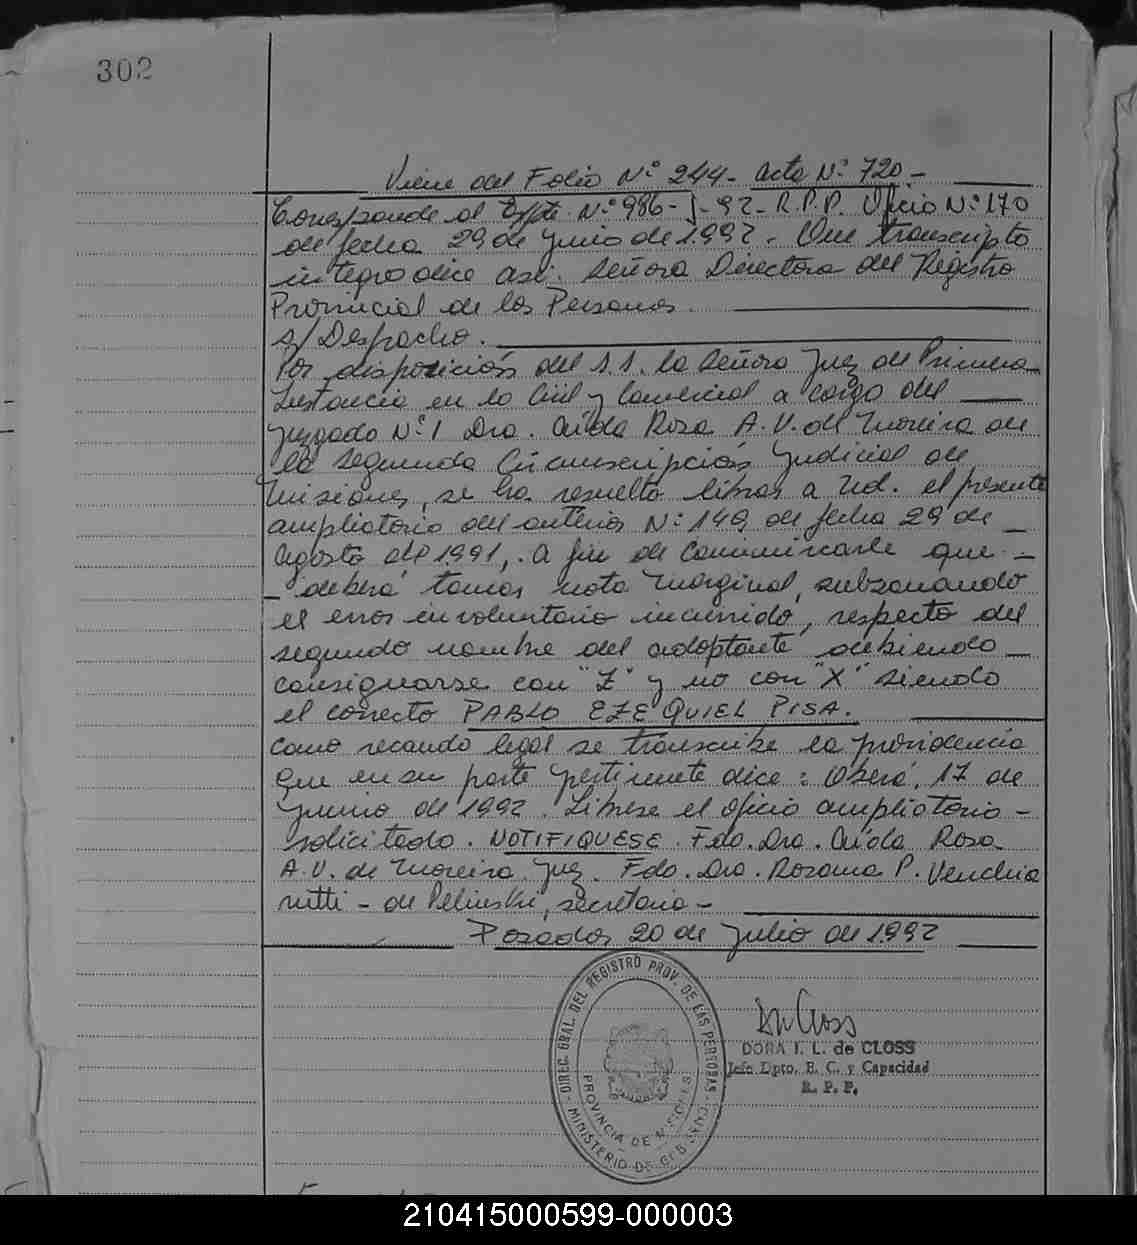 302
Viene del Folio N° 244 - Acta N° 720 -
Corresponde al Expte. N° 986-J-92- R.P.P. Oficio N° 170
de fecha 29 de junio de 1.992. Que transcripto
integro dice asi: Señora Directora del Registro
Provincial de las Personas.
s/ Despacho.
Por disposición del S.S. la Señora Juez de Primera
Instancia en lo Civil y Comercial a cargo del
Juzgado N° 1 Dra. Aida Rosa A.V. de Moreira de
la Segunda Circunscripción Judicial de
Misiones, se ha resuelto librar a Ud. el presente
ampliatorio del anterior N° 149 de fecha 29 de
Agosto del 1.991, a fin de comunicarle que -
- deberá tomar nota marginal, subsanando
el error involuntario incurrido, respecto del
segundo nombre del adoptante debiendo
consignarse con "Z" y no con "X" siendo
el correcto PABLO EZEQUIEL PISA.
Como recaudo legal se transcribe la providencia
que en su parte pertinente dice: Oberá, 17 de
junio de 1992. Librese el oficio ampliatorio -
solicitado. NOTIFIQUESE. Fdo. Dra. Aida Rosa
A.V. de Moreira. Juez. Fdo. Dra. Rosana P. Venchia
rutti - de Pelinski, secretaria -
Posadas 20 de julio de 1.992
DIREC. GRAL. DEL REGISTRO PROV. DE LAS PERSONAS
PROVINCIA DE MISIONES
MINISTERIO DE GOB.
DORA I. L. de CLOSS
Jefe Dpto. E. C. y Capacidad
R. P. P.
210415000599-000003